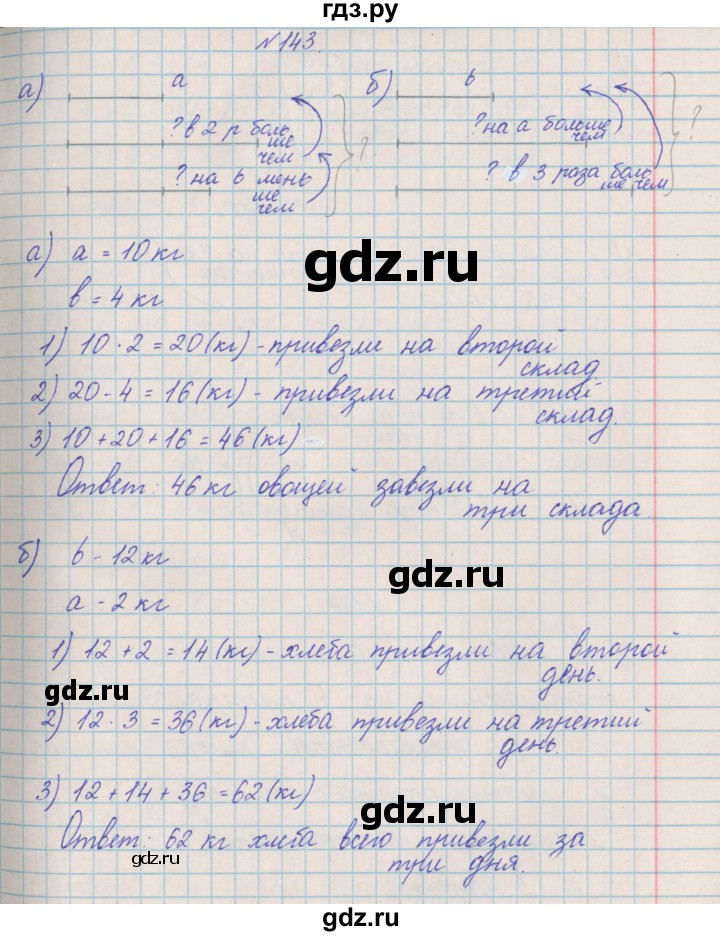 гдз.ру
№143.
а) а
? в 2 р боль
ше
чем
? на в мень
ше
чем
?
б) в
? на а больше
чем
? в 3 раза боль
ше чем
?
а) а = 10 кг
в = 4 кг
1) 10 · 2 = 20 (кг) - привезли на второй
склад
2) 20 - 4 = 16 (кг) - привезли на третий
склад.
3) 10 + 20 + 16 = 46 (кг)
Ответ: 46 кг овощей завезли на
три склада.
б) в - 12 кг
а - 2 кг
1) 12 + 2 = 14 (кг) - хлеба привезли на второй
день.
2) 12 · 3 = 36 (кг) - хлеба привезли на третий
день.
3) 12 + 14 + 36 = 62 (кг)
Ответ: 62 кг хлеба всего привезли за
три дня.
gdz.ru
gdz.ru
gdz.ru
gdz.ru
gdz.ru